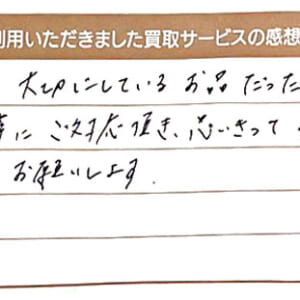 利用いただきました買取サービスの感想
大切にしているお品だった
事にご対応頂き、思いきって
お願いします.